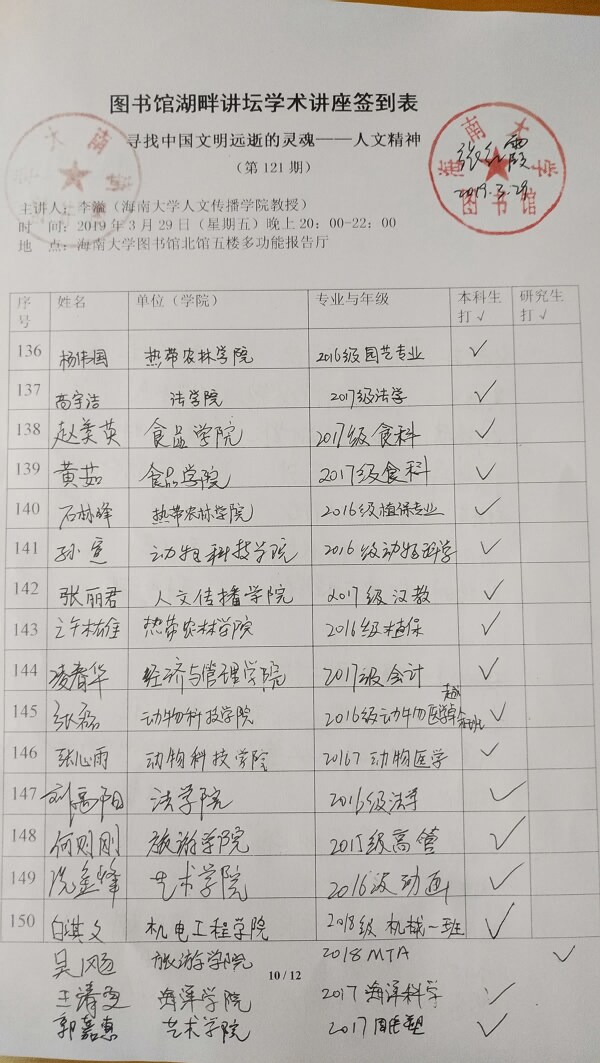 图书馆湖畔讲坛学术讲座签到表
寻找中国文明远逝的灵魂——人文精神
（第 121 期）
海南大学
图书馆
张红霞
2019.3.29
主讲人：李瀛（海南大学人文传播学院教授）
时 间：2019 年 3 月 29 日（星期五）晚上 20：00-22：00
地 点：海南大学图书馆北馆五楼多功能报告厅
序号 姓名 单位（学院） 专业与年级 本科生打√ 研究生打√
136 杨伟国 热带农林学院 2016级园艺专业 √
137 高宇洁 法学院 2017级法学 √
138 赵美英 食品学院 2017级食科 √
139 黄茹 食品学院 2017级食科 √
140 石林峰 热带农林学院 2016级植保专业 √
141 孙宣 动物科技学院 2016级动物科学 √
142 张丽君 人文传播学院 2017级汉教 √
143 许林雄 热带农林学院 2016级植保 √
144 凌春华 经济与管理学院 2017级会计 √
145 张磊 动物科技学院 2016级动物医学 √
146 张心雨 动物科技学院 20167 动物医学 √
147 刘高阳 法学院 2016级法学 √
148 何则刚 旅游学院 2015级高管 √
149 冼金峰 艺术学院 2016级动画 √
150 白淇文 机电工程学院 2018级 机械一班 √
吴 旅游学院 2018 MTA √
10 / 12
王靖 海洋学院 2017 海洋科学 √
郭嘉惠 艺术学院 2017 雕塑 √